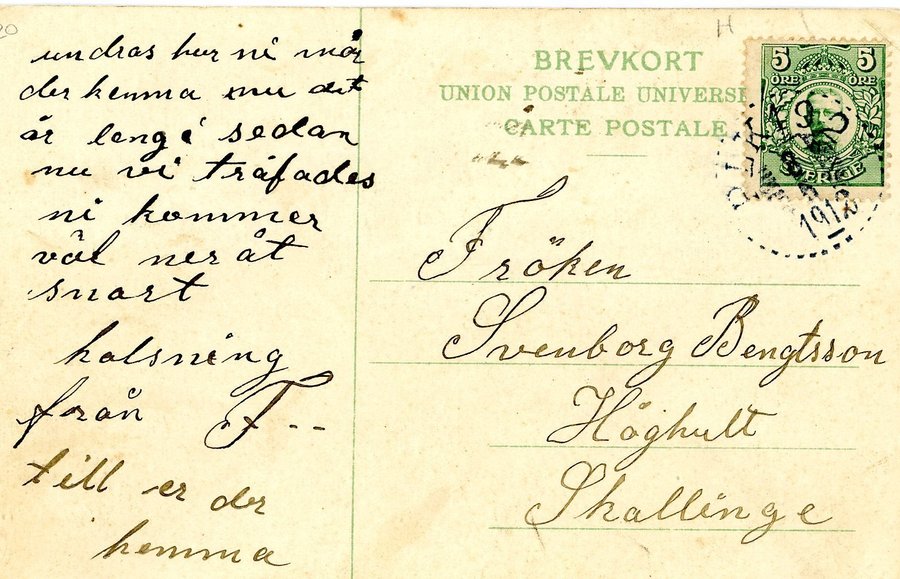 undras hur ni mår
der hemma nu det
är lengé sedan
nu vi träfades
ni kommer
väl neråt
snart
halsning
från F--
till er der
hemma
H
BREVKORT
UNION POSTALE UNIVERSE
CARTE POSTALE
5 5
ÖRE ÖRE
SVERIGE
1913
Fröken
Svenborg Bengtsson
Höghult
Skallinge